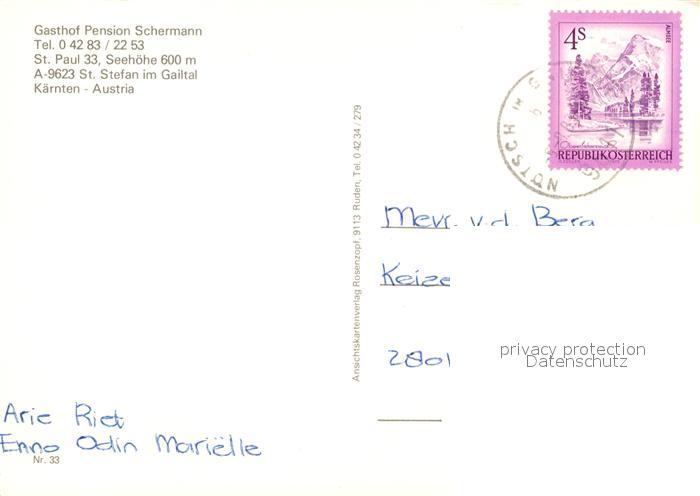 Gasthof Pension Schermann
Tel. 0 42 83 / 22 53
St. Paul 33, Seehöhe 600 m
A-9623 St. Stefan im Gailtal
Kärnten - Austria
Ansichtskartenverlag Rosenzopf, 9113 Ruden, Tel. 0 42 34 / 279
4S
ALMSEE
REPUBLIK ÖSTERREICH
NÖTSCH
Mevr. v.d. Berg
Keize
2801
privacy protection
Datenschutz
Arie Riet
Enno Odin Mariëlle
Nr. 33